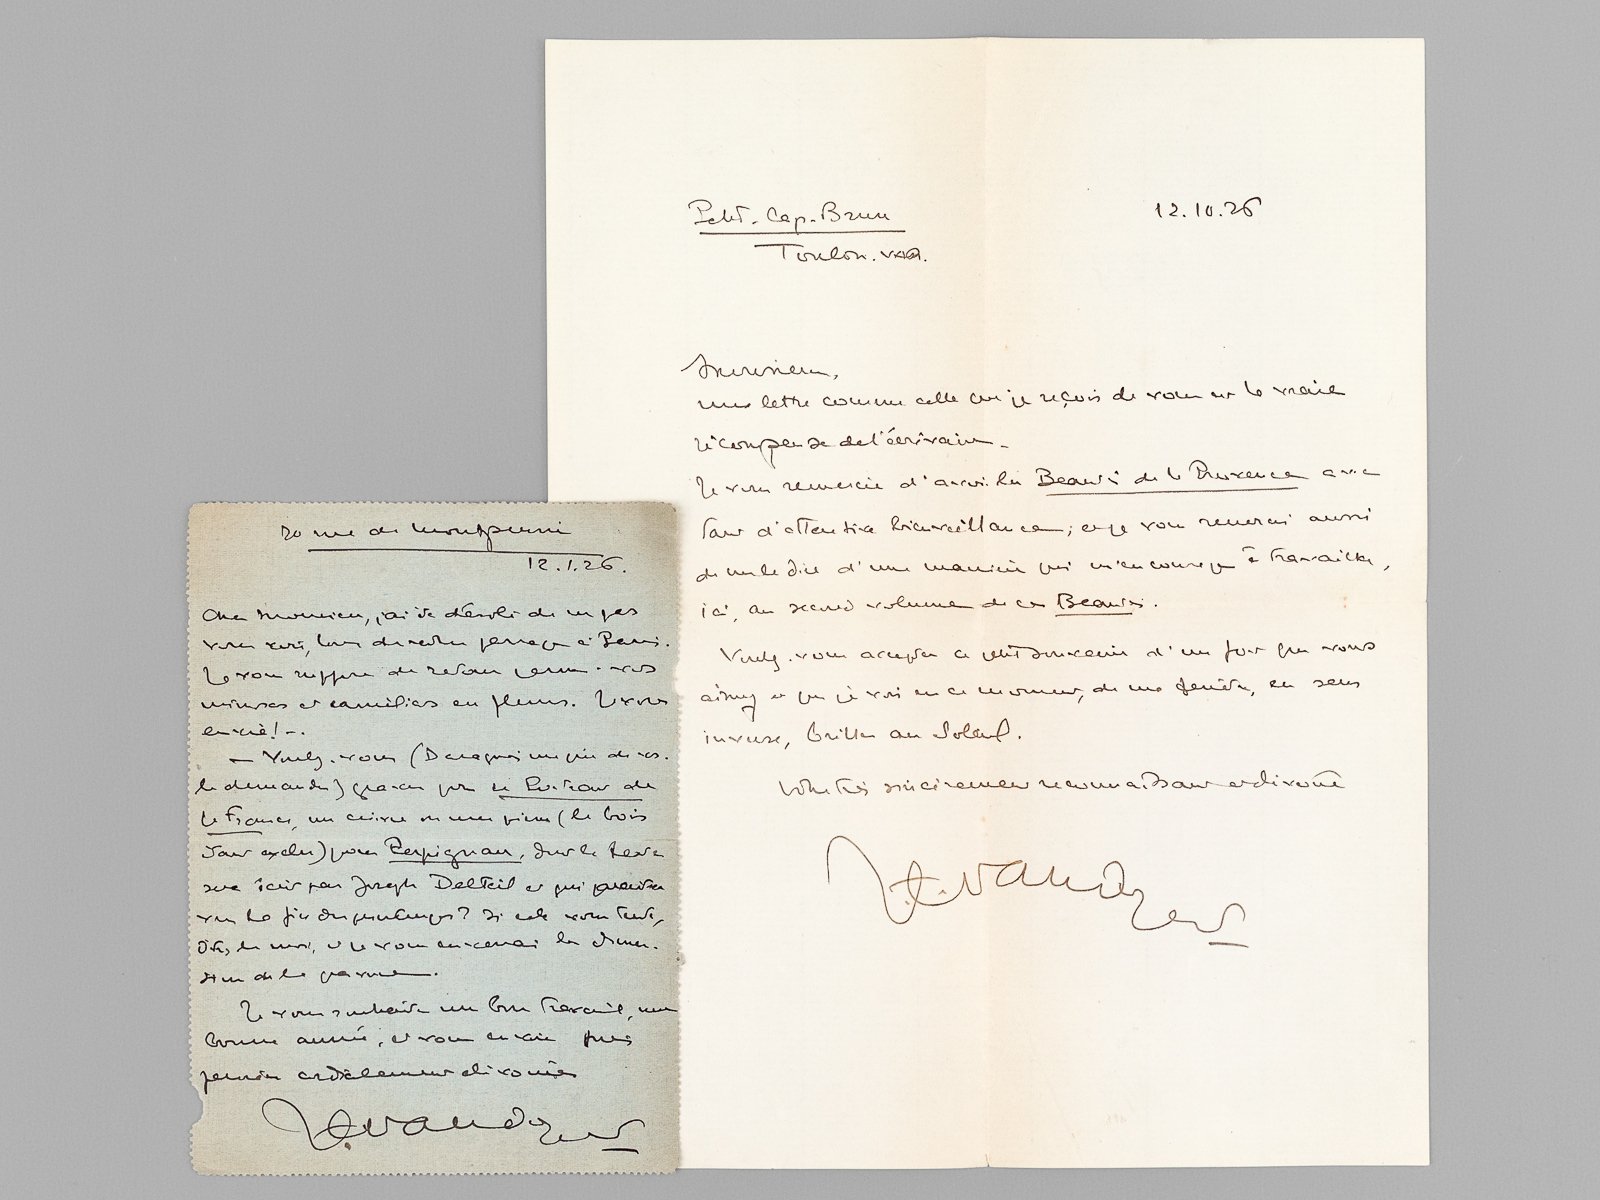 20 rue de Montpensier
12.1.26.
Cher Monsieur, j'ai été désolé de ne pas
vous voir, lors de votre passage à Paris.
Je vous suppose de retour parmi vos
mimosas et camélias en fleurs. Je vous
envie! -.
— Voulez-vous (Daragnès me prie de vs.
le demander) graver pour le Portrait de
la France, un cuivre ou une pierre (le bois
étant exclu) pour Perpignan, dont le texte
sera écrit par Joseph Delteil et qui paraîtra
vers la fin du printemps? Si cela vous tente,
dites-le moi, et je vous enverrai la dimen-
sion de la gravure.
Je vous souhaite un bon travail, une
bonne année, et vous envoie mes
pensées cordialement dévouées
JL. Vaudoyer
Petit-Cap-Brun
Toulon. Var.
12.10.26
Monsieur,
une lettre comme celle que je reçois de vous est la vraie
récompense de l'écrivain -
Je vous remercie d'avoir lu Beautés de la Provence avec
tant d'attentive bienveillance; et je vous remercie aussi
de me le dire d'une manière qui m'encourage à travailler,
ici, au second volume de ces Beautés.
Voulez-vous accepter ce petit souvenir d'un fort que vous
aimez et que je vois en ce moment, de ma fenêtre, en sens
inverse, briller au soleil.
Votre très sincèrement reconnaissant et dévoué
JL. Vaudoyer